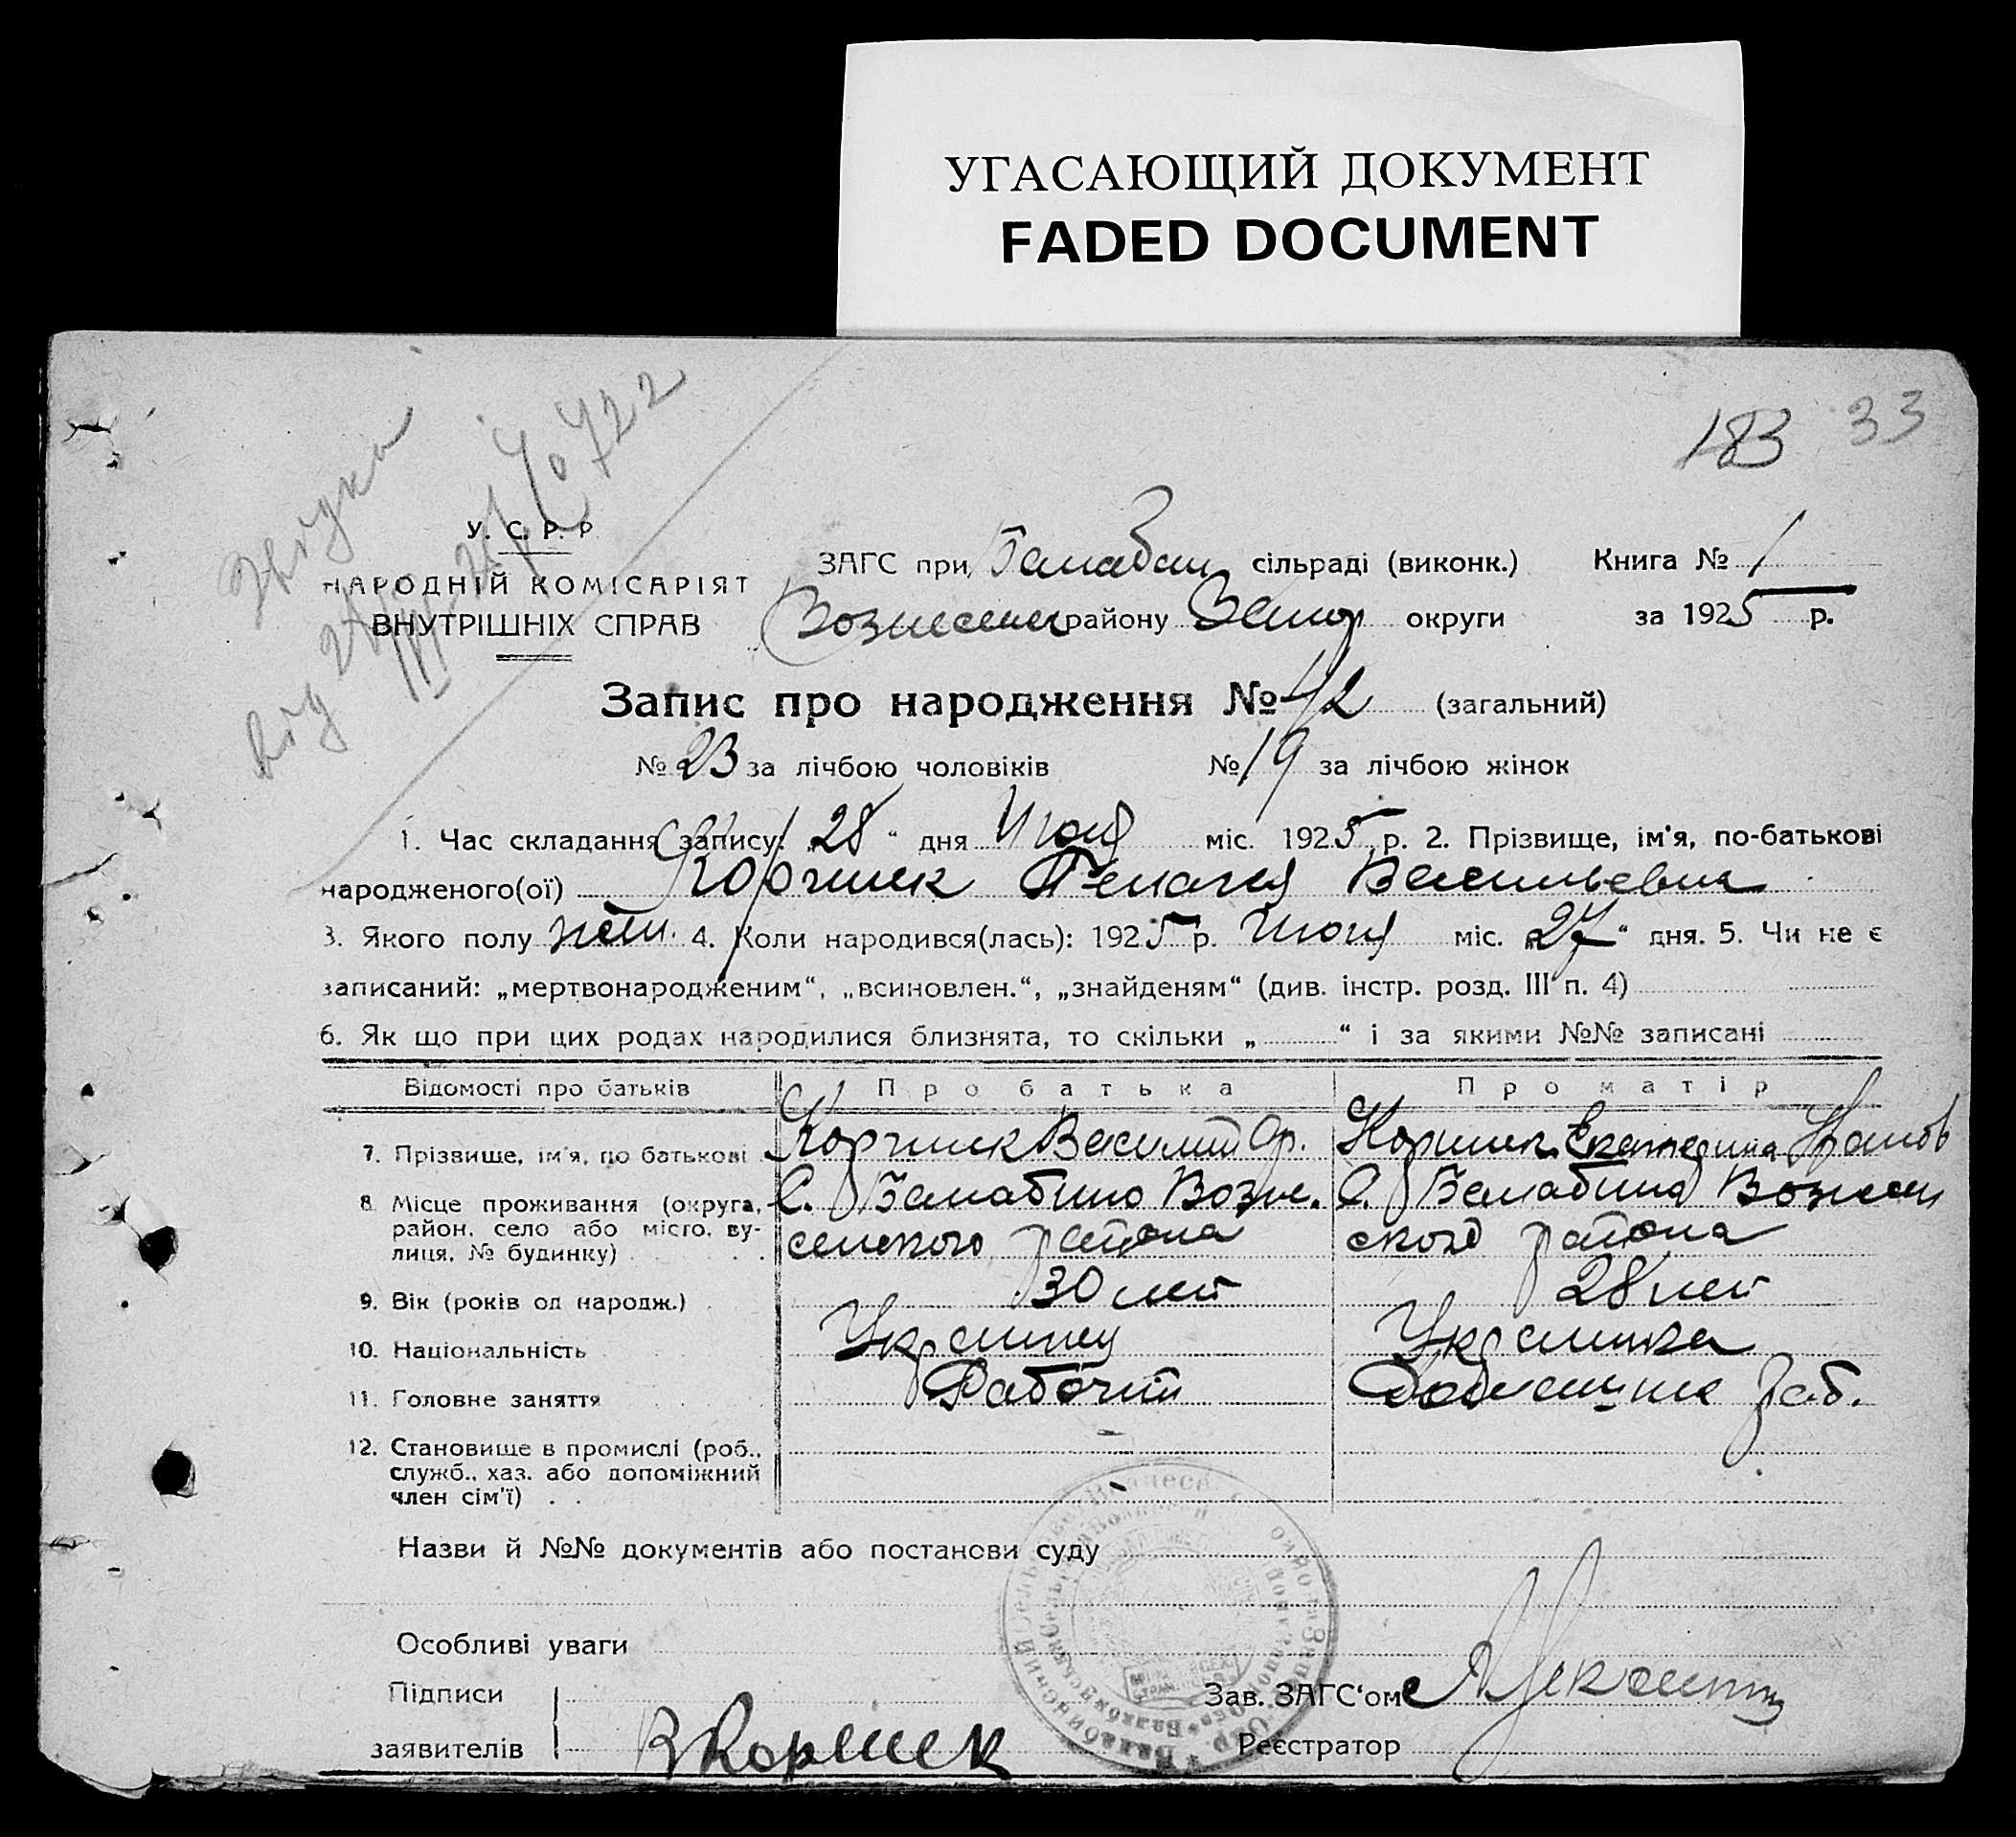 УГАСАЮЩИЙ ДОКУМЕНТ
FADED DOCUMENT
183 33
У. С. Р. Р
НАРОДНІЙ КОМІСАРІЯТ
ВНУТРІШНІХ СПРАВ
ЗАГС при Балабин сільраді (виконк.) Книга № 1
Вознесен району Запор округи за 1925 р.
Запис про народження № 42 (загальний)
№ 23 за лічбою чоловіків № 19 за лічбою жінок
1. Час складання запису: 28 " дня Июля міс. 1925 р. 2. Прізвище, ім'я, по-батькові
народженого(ої) Коршик Пелагея Васильевна
3. Якого полу жен. 4. Коли народився(лась): 1925 р. Июля міс. „27" дня. 5. Чи не є
записаний: „мертвонародженим“, „всиновлен.“, „знайденям“ (див. інстр. розд. III п. 4)
6. Як що при цих родах народилися близнята, то скільки „ “ і за якими №№ записані
Відомості про батьків Про батька Про матір
7. Прізвище, ім'я, по батькові Коршик Василий Ор. Коршик Екатерина Иванов
8. Місце проживання (округа, С. Балабино Возне- С. Балабино Вознесен
район, село або місто, ву- сенского района ского района
лиця, № будинку)
9. Вік (років од народж.) 30 лет 28 лет
10. Національність Украинец Украинка
11. Головне заняття Рабочий Домашние раб.
12. Становище в промислі (роб.,
служб., хаз. або допоміжний
член сім'ї)
Назви й №№ документів або постанови суду
Особливі уваги
Підписи Зав. ЗАГС'ом
заявителів В Коршик Реєстратор